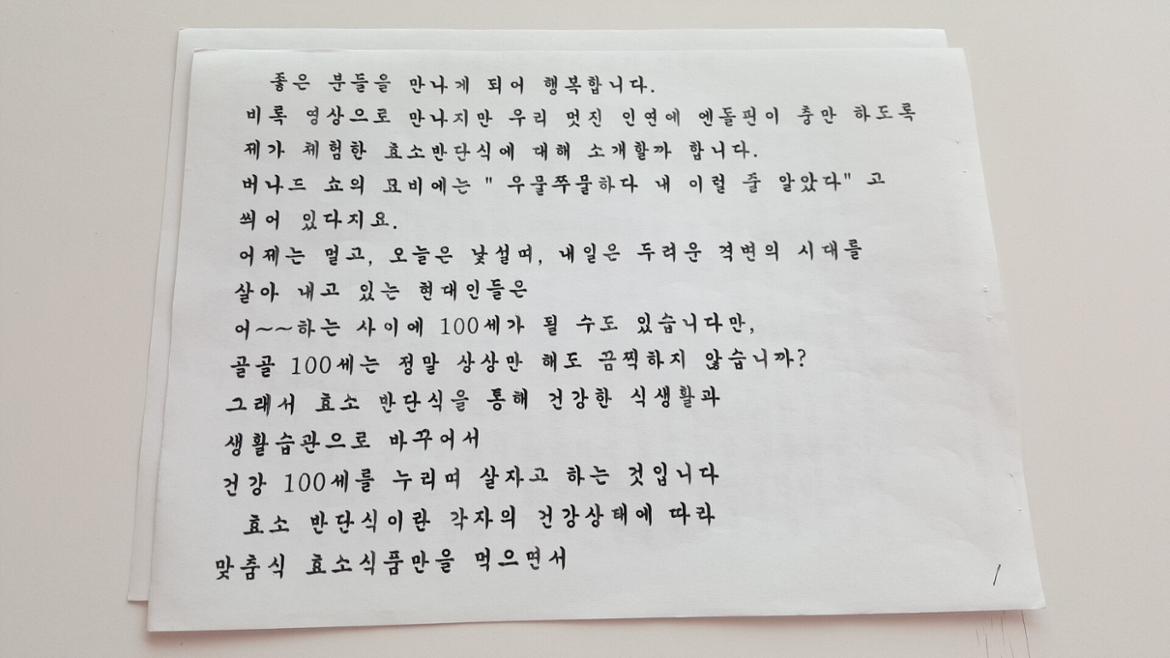 좋은 분들을 만나게 되어 행복합니다.
비록 영상으로 만나지만 우리 멋진 인연에 엔돌핀이 충만 하도록
제가 체험한 효소반단식에 대해 소개할까 합니다.
버나드 쇼의 묘비에는 " 우물쭈물하다 내 이럴 줄 알았다" 고
씌어 있다지요.
어제는 멀고, 오늘은 낯설며, 내일은 두려운 격변의 시대를
살아 내고 있는 현대인들은
어~~하는 사이에 100세가 될 수도 있습니다만,
골골 100세는 정말 상상만 해도 끔찍하지 않습니까?
그래서 효소 반단식을 통해 건강한 식생활과
생활습관으로 바꾸어서
건강 100세를 누리며 살자고 하는 것입니다
효소 반단식이란 각자의 건강상태에 따라
맞춤식 효소식품만을 먹으면서
1